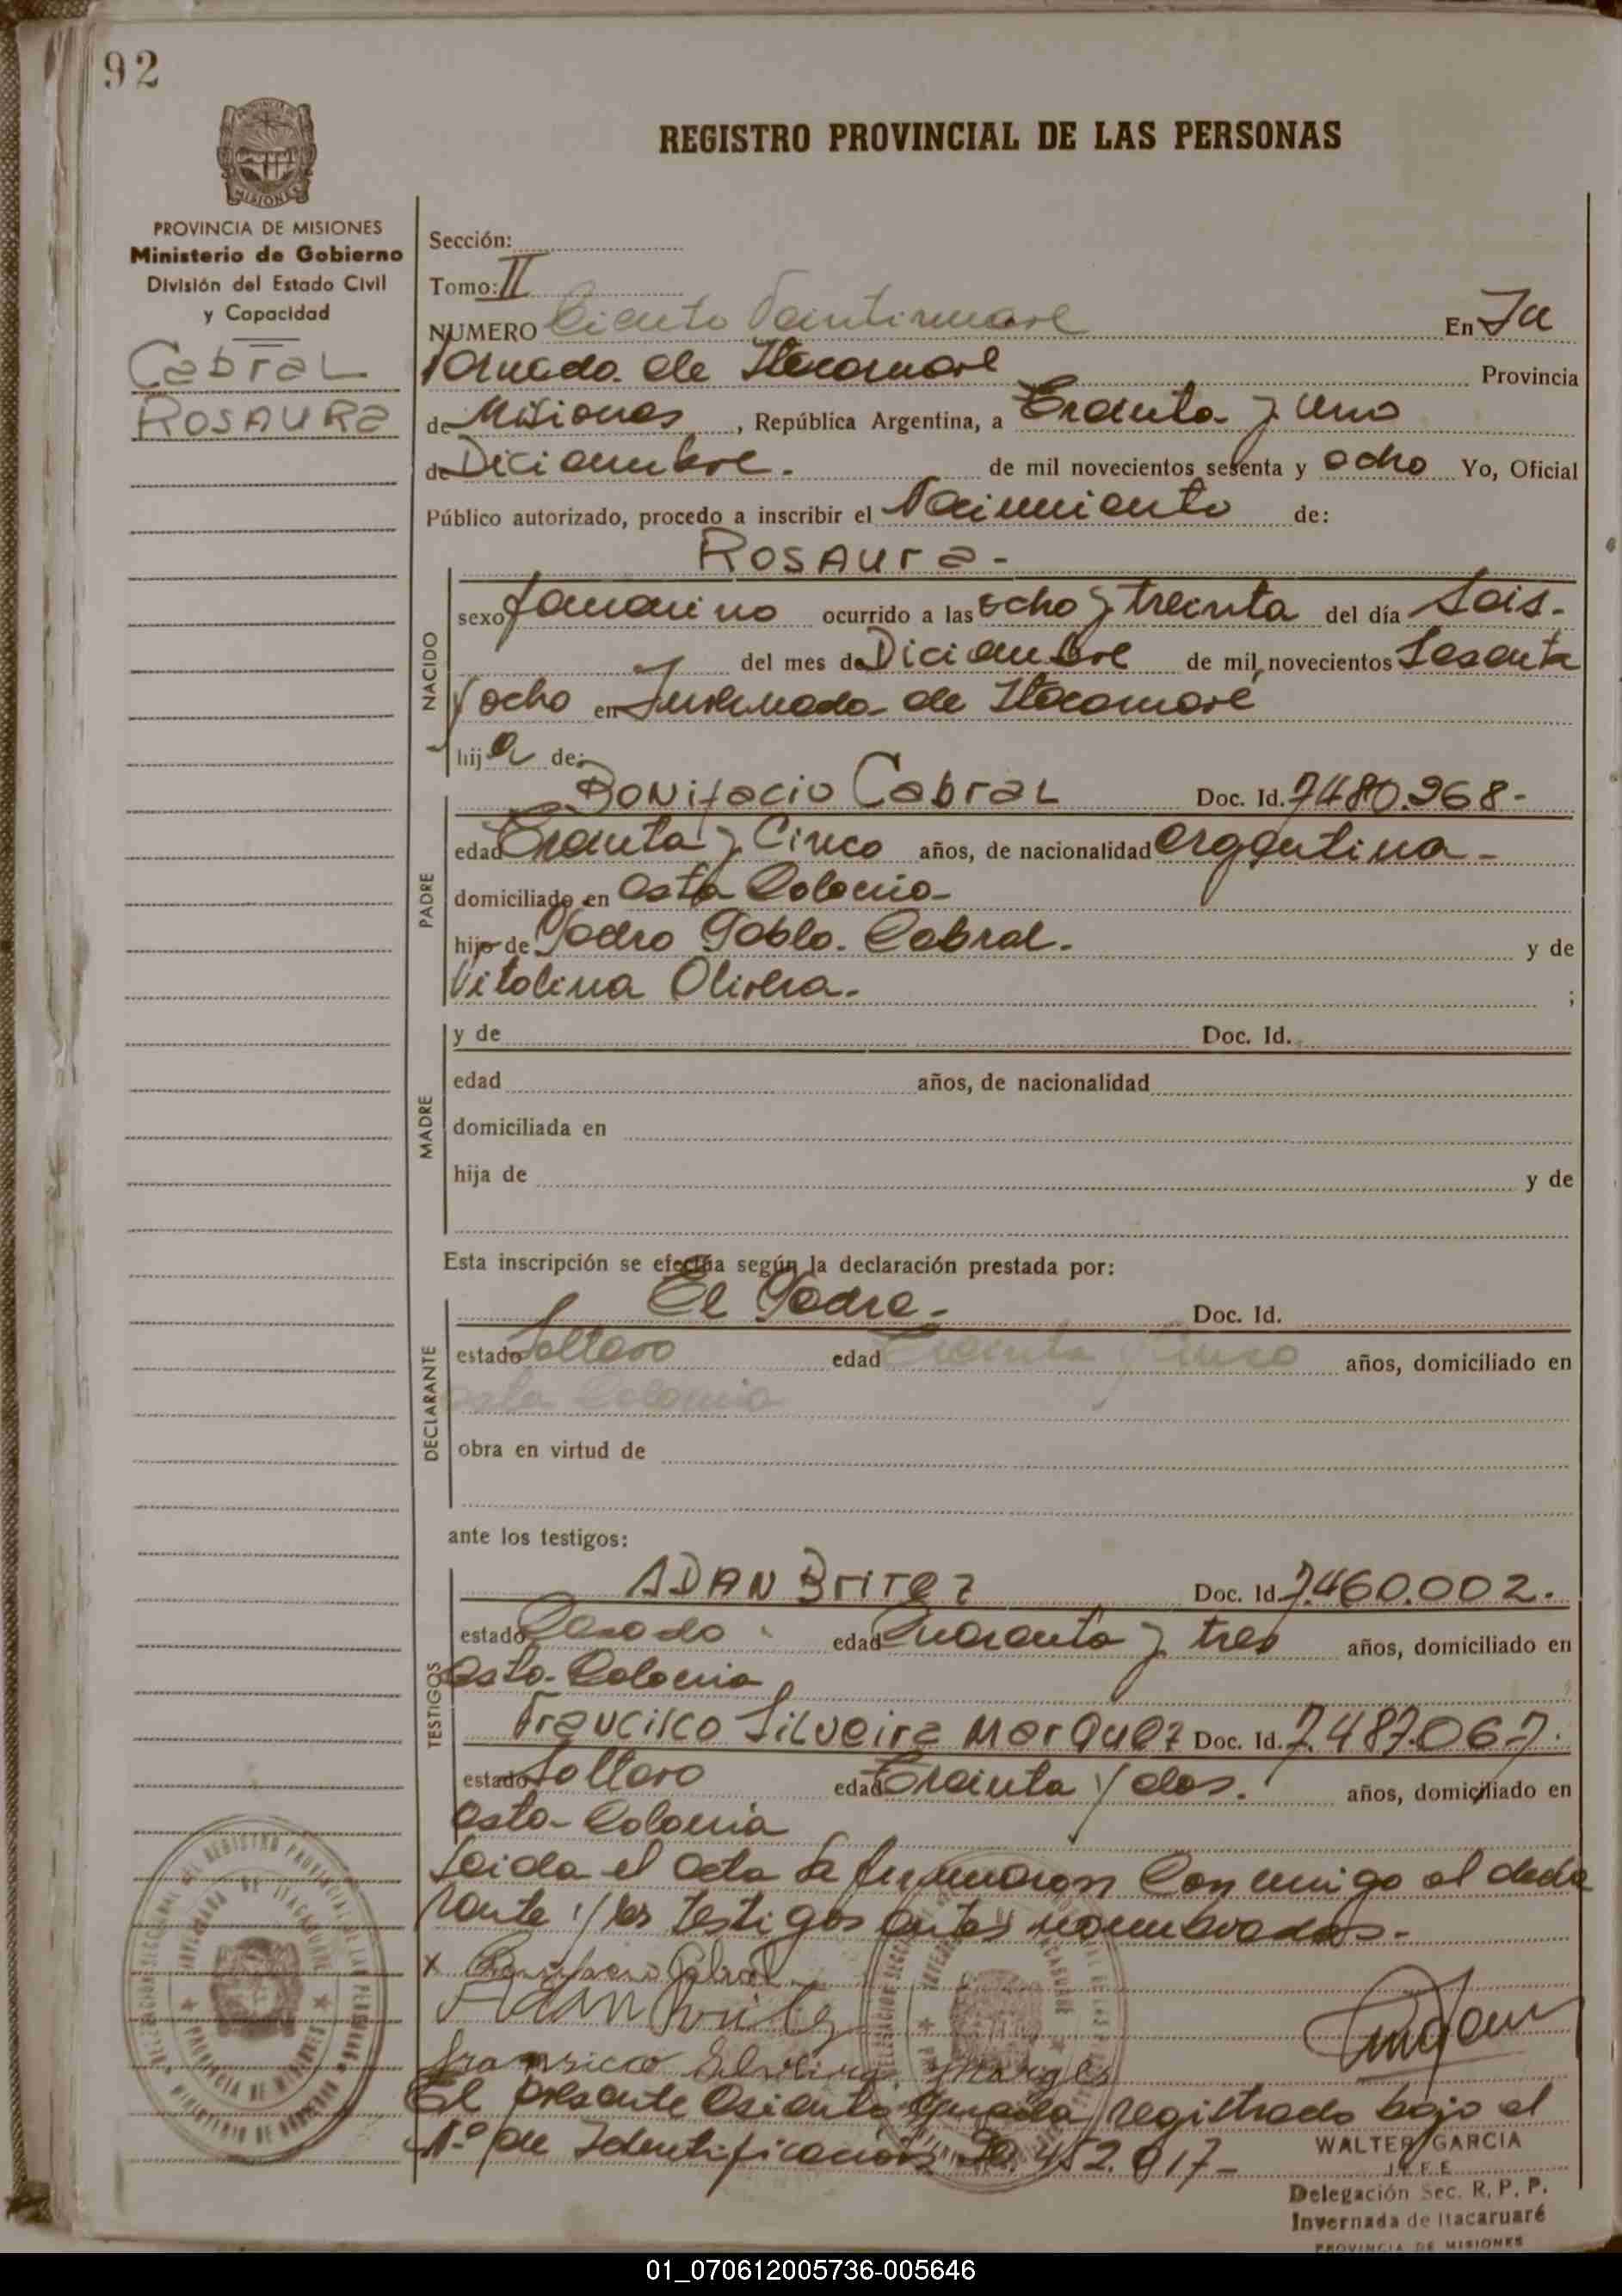 92
REGISTRO PROVINCIAL DE LAS PERSONAS
PROVINCIA DE MISIONES
Ministerio de Gobierno
División del Estado Civil
y Capacidad
Cabral
Rosaura
Sección:
Tomo: II
NUMERO Ciento Veintinueve En In
vernada de Itacaruaré Provincia
de Misiones, República Argentina, a Treinta y uno
de Diciembre. de mil novecientos sesenta y ocho Yo, Oficial
Público autorizado, procedo a inscribir el Nacimiento de:
Rosaura -
NACIDO
sexo femenino ocurrido a las ocho y treinta del día Seis.
del mes de Diciembre de mil novecientos Sesenta
y ocho en Invernada de Itacaruaré
hija de:
PADRE
Bonifacio Cabral Doc. Id. 7480.968-
edad Treinta y Cinco años, de nacionalidad argentina -
domiciliado en esta Colonia-
hijo de Pedro Pablo. Cabral. y de
Vitalina Olivera. ;
MADRE
y de Doc. Id.
edad años, de nacionalidad
domiciliada en
hija de y de
Esta inscripción se efectúa según la declaración prestada por:
DECLARANTE
El Padre - Doc. Id.
estado Soltero edad Treinta y Cinco años, domiciliado en
esta Colonia
obra en virtud de
ante los testigos:
TESTIGOS
ADAN Britez Doc. Id. 7.460.002.
estado Casado edad Cuarenta y tres años, domiciliado en
esta Colonia
Francisco Silveira Marquez Doc. Id. 7.487.067.
estado Soltero edad Treinta y dos. años, domiciliado en
esta Colonia
Leida el acta la firmaron Conmigo el decla
rante y los testigos antes nombrados.-
x Bonifacio Cabral
Adan Britez
El presente asiento queda registrado bajo el
N.º de Identificación 20.452.917-
WALTER GARCIA
JEFE
Delegación Sec. R. P. P.
Invernada de Itacaruaré
PROVINCIA DE MISIONES
01_070612005736-005646